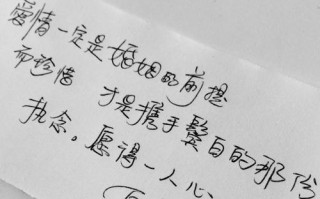 爱情一定是婚姻的前提
而珍惜 才是携手鬓白的那份
执念。愿得一人心